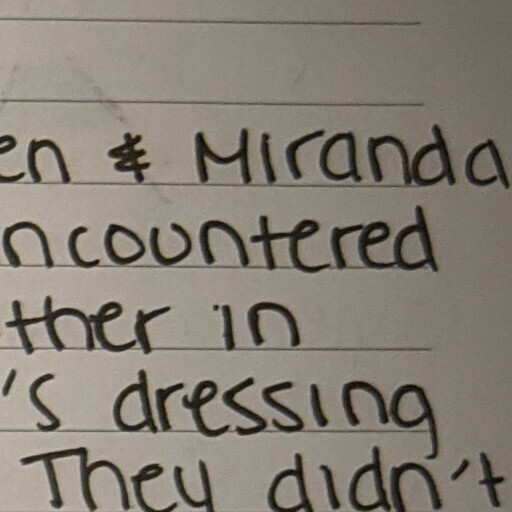 en & Miranda
ncountered
ther in
's dressing
They didn't